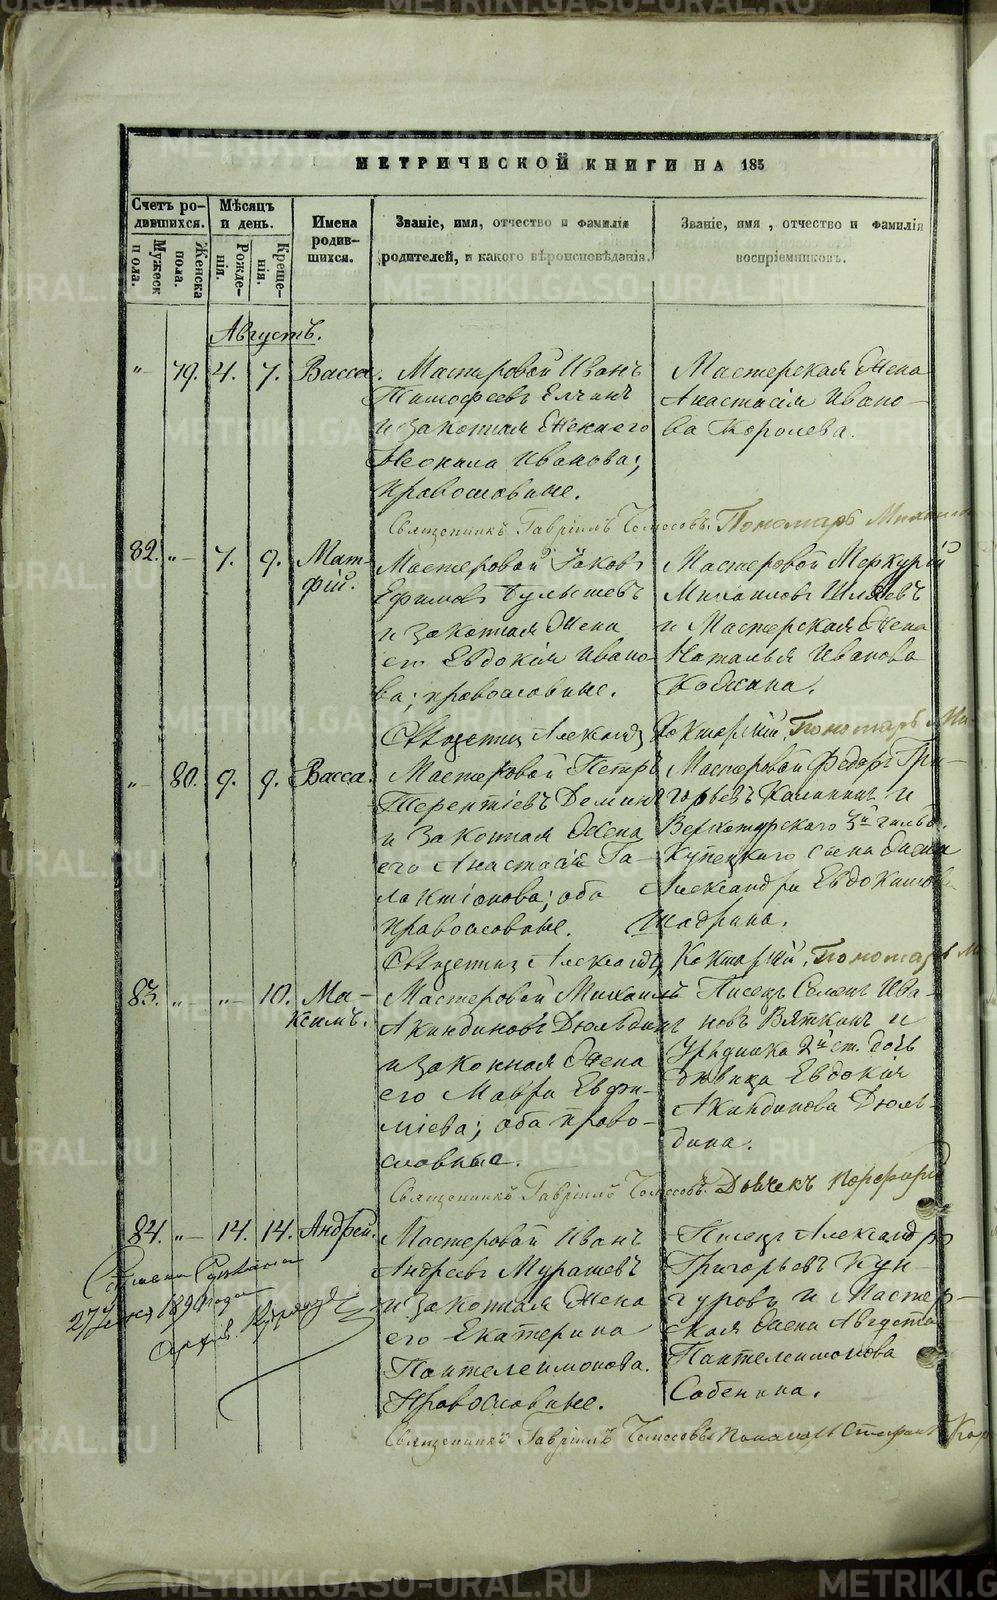 МЕТРИЧЕСКОЙ КНИГИ НА 185
Счетъ ро-
дившихся.
Мужеск
пола.
Женска
пола.
Мѣсяцъ
и день.
Рожде-
нія.
Креще-
нія.
Имена
родив-
шихся.
Званіе, имя, отчество и фамилія
родителей, и какого вѣроисповѣданія.
Званіе, имя, отчество и фамилія
воспріемниковъ.
Августъ.
"— 79. 4. 7. Васса.
Мастеровой Иванъ
Тимофеевъ Елчинъ
и законная жена его
Неонила Иванова;
православные.
Мастерская жена
Анастасія Ивано-
ва Королева.
Священникъ Гавріилъ Пономарь
82. "— 7. 9. Мат-
фій.
Мастеровой Яковъ
Ефимовъ
и законная жена
его Евдокія Ивано-
ва; православные.
Мастеровой Меркурій
Михаиловъ
и Мастерская жена
Наталья Иванова
Священникъ Александръ Пономарь
"— 80. 9. 9. Васса.
Мастеровой Петръ
Терентіевъ Деминъ
и законная жена
его Анастасія Га-
лактіонова; оба
православные.
Мастеровой Федоръ Гри-
горьевъ Калининъ и
Верхотурскаго 3й гильд.
Купецкаго сына жена
Александра Евдокимова
Шадрина.
Священникъ Александръ Пономарь
83. "— "— 10. Ма-
ксимъ.
Мастеровой Михаилъ
Акиндиновъ Дюльдинъ
и законная жена
его Мавра Евфи-
міева; оба право-
славные.
Писецъ Семенъ Ива-
новъ Вяткинъ и
Урядника 2й ст. дочь
дѣвица Евдокія
Акиндинова Дюль-
дина.
Священникъ Гавріилъ Дьячекъ Порфирій
84. "— 14. 14. Андрей.
Мастеровой Иванъ
Андреевъ Мурашевъ
и законная жена
его Екатерина
Пантелеимонова.
Православные.
Писецъ Александръ
Григорьевъ Кун-
гуровъ и Мастер-
ская жена Августа
Пантелеимонова
Собенина.
27 1890 года
Священникъ Гавріилъ
METRIKI.GASO-URAL.RU